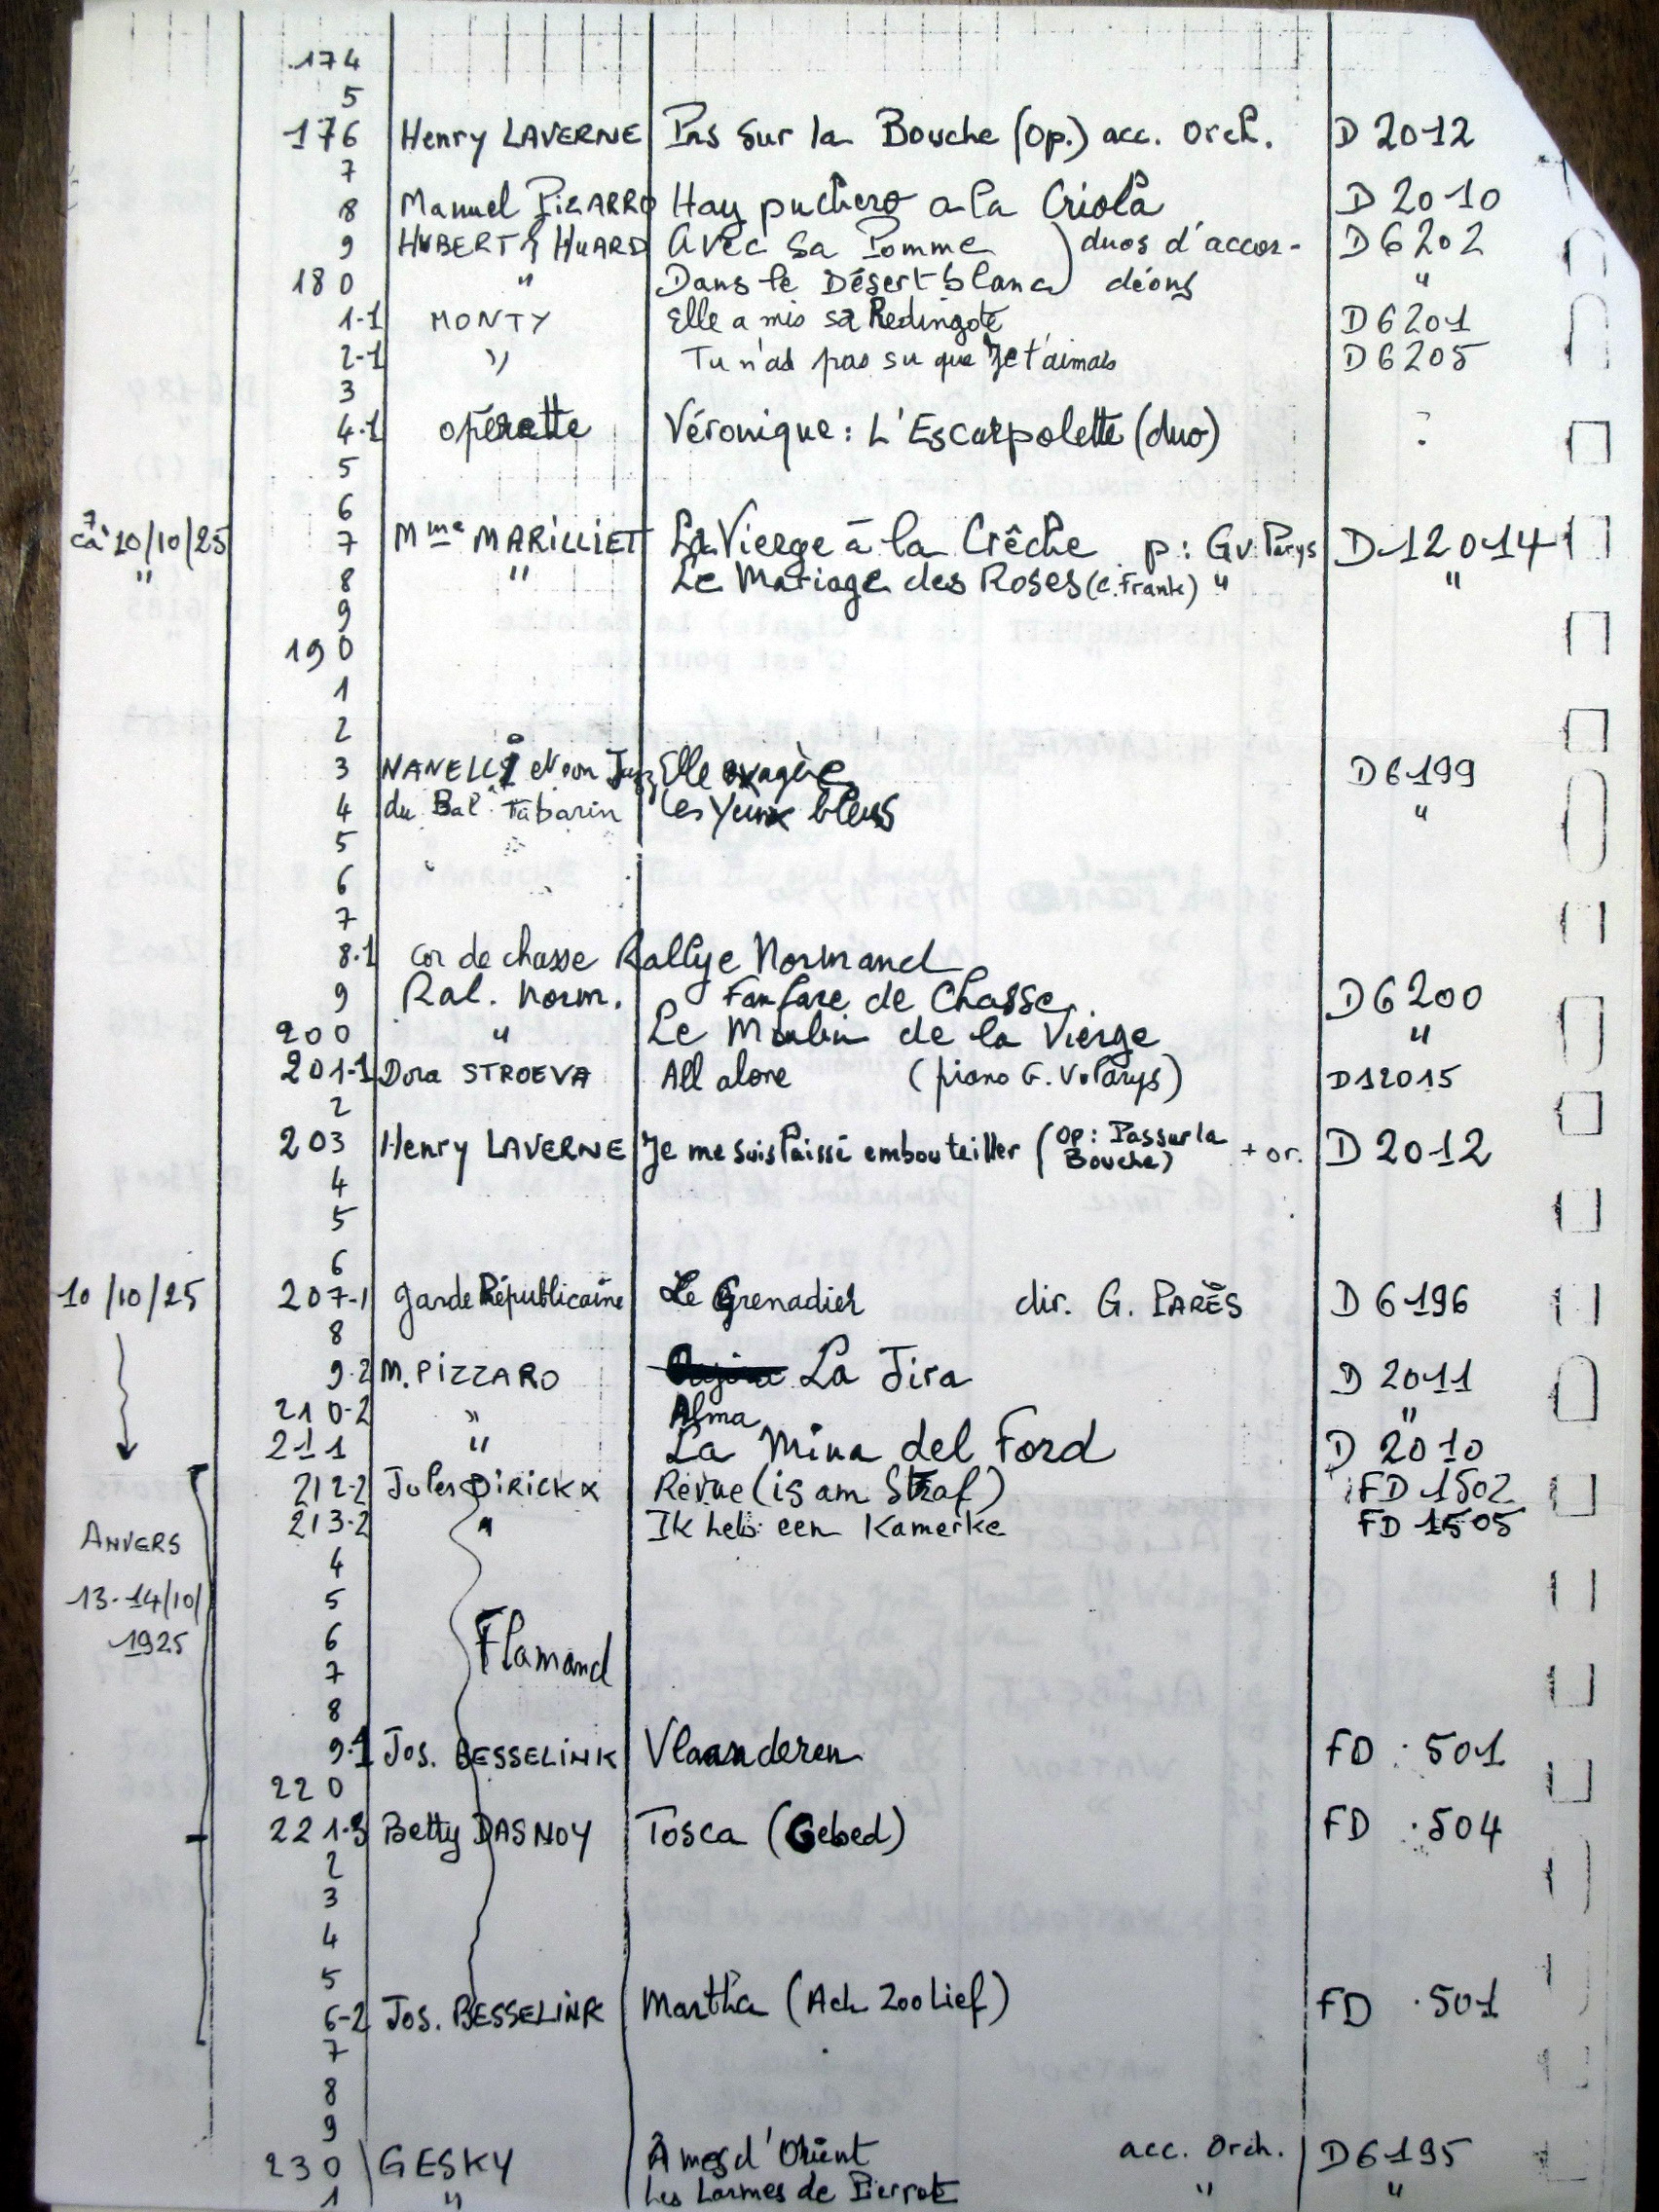 174
5
176 Henry LAVERNE Pas Sur la Bouche (Op.) acc. Orch. D 2012
7
8 Manuel PIZARRO Hay puchero a la Criola D 2010
9 HUBERT & HUARD Avec Sa Pomme ) duos d'accor- D 6202
180 " Dans le Désert blanc ) déons "
1-1 MONTY Elle a mis sa Redingote D 6201
2-1 " Tu n'as pas su que je t'aimais D 6205
3
4.1 opérette Véronique : L'Escarpolette (duo) ?
5
6
7
ca 10/10/25 7 Mme MARILLIET La Vierge à la Crêche p : G v. Parys D 12014
" 8 " Le Mariage des Roses (C. Frank) " "
9
190
1
2
3 NANELLI et son Jazz Elle exagère D 6199
4 du Bal Tabarin Les Yeux bleus "
5
6
7
8.1 cor de chasse Rallye Normand
9 Ral. Norm. Fanfare de Chasse D 6200
200 " Le Moulin de la Vierge "
201-1 Dora STROEVA All alone (piano G. V. Parys) D12015
2
203 Henry LAVERNE Je me suis laissé embouteiller (Op : Pas sur la Bouche) + or. D 2012
4
5
6
10/10/25 207-1 Garde Républicaine Le Grenadier dir. G. PARÈS D 6196
8
9.2 M. PIZZARO La Jira D 2011
210-2 " Alma "
211 " La Mina del Ford D 2010
212-2 Jules DIRICKX Revue (is am Straf) FD 1502
213-2 " Ik heb een Kamerke FD 1505
ANVERS
4
13-14/10/ 5
1925 6 Flamand
7
8
9.1 Jos. BESSELINK Vlaanderen FD 501
220
221-3 Betty DASNOY Tosca (Gebed) FD 504
2
3
4
5
6-2 Jos. BESSELINK Martha (Ach Zoo Lief) FD 501
7
8
9
230 GESKY Âmes d'Orient acc. Orch. D 6195
1 " Les Larmes de Pierrot " "